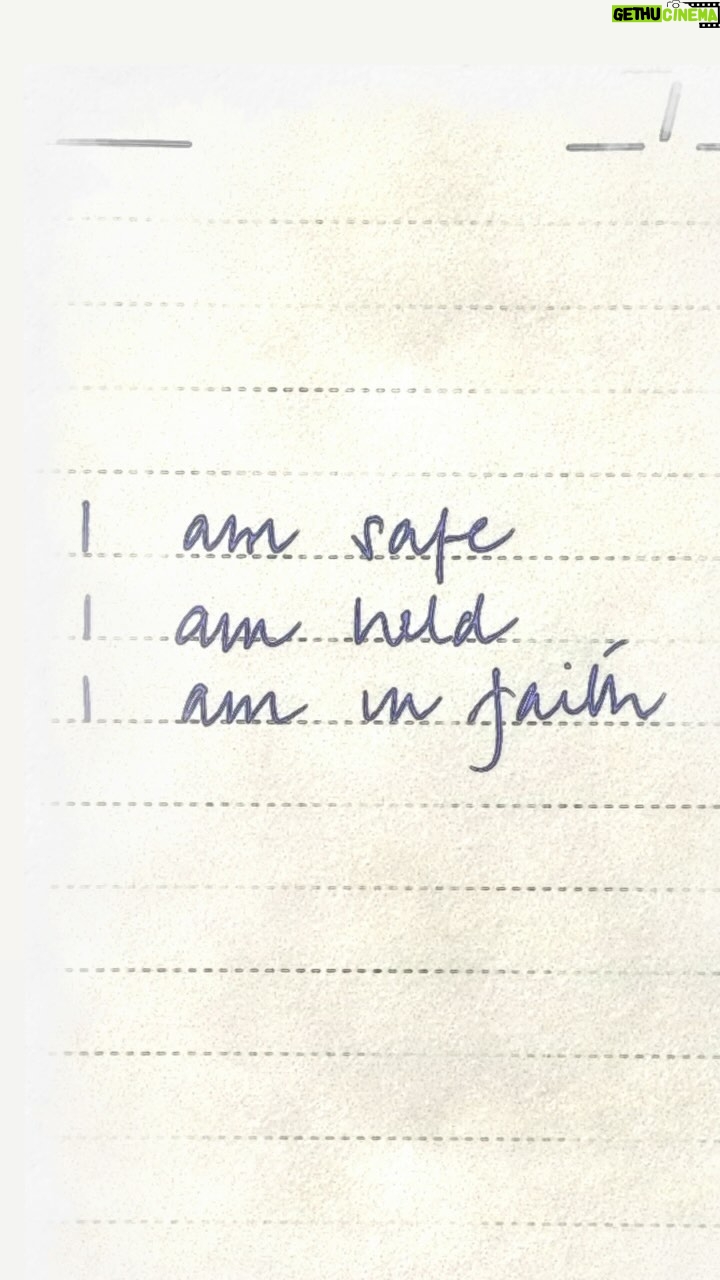 GETHU CINEMA
I am safe
I am held
I am in faith